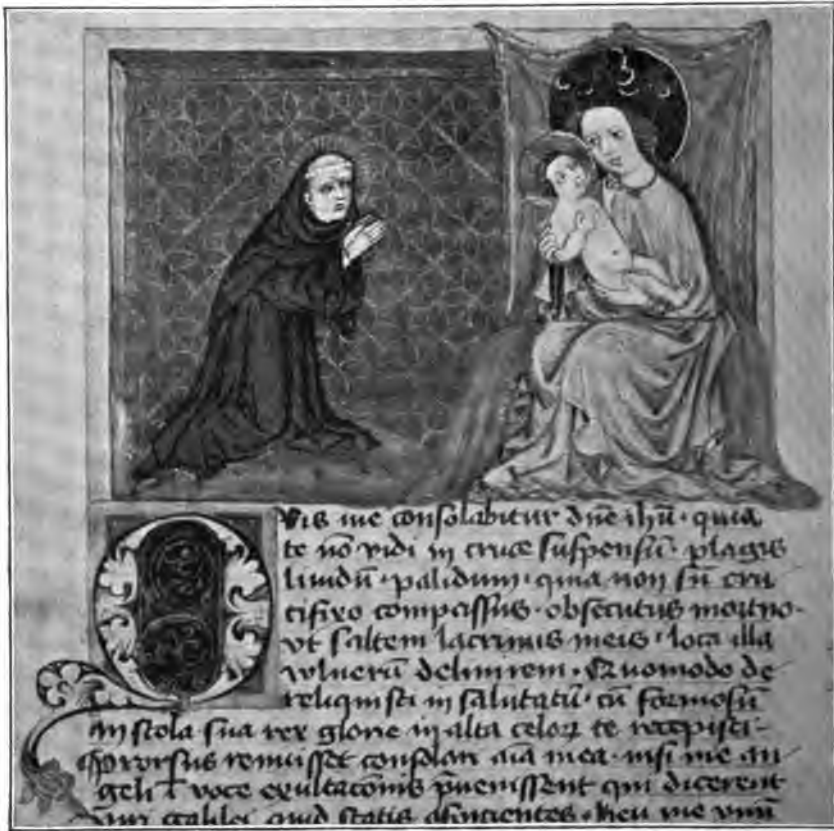 Vis me consolabitur dñe ihũ · quia
te nõ vidi in cruce suspensũ · plagis
liuidũ · palidum · quia non sũ cru
cifixo compassus · obsecutus mortuo ·
vt saltem lacrimis meis · loca illa
wlnerũ delinirem · Quomodo de
reliquisti insalutatũ · cũ formosũ
in stola sua rex glorie in alta celoꝝ te recepisti ·
consolari aĩa mea · nisi me an
geli voce exultacõnis p̃uenissent qui dicerent
viri galilei quid statis aspicientes · heu me